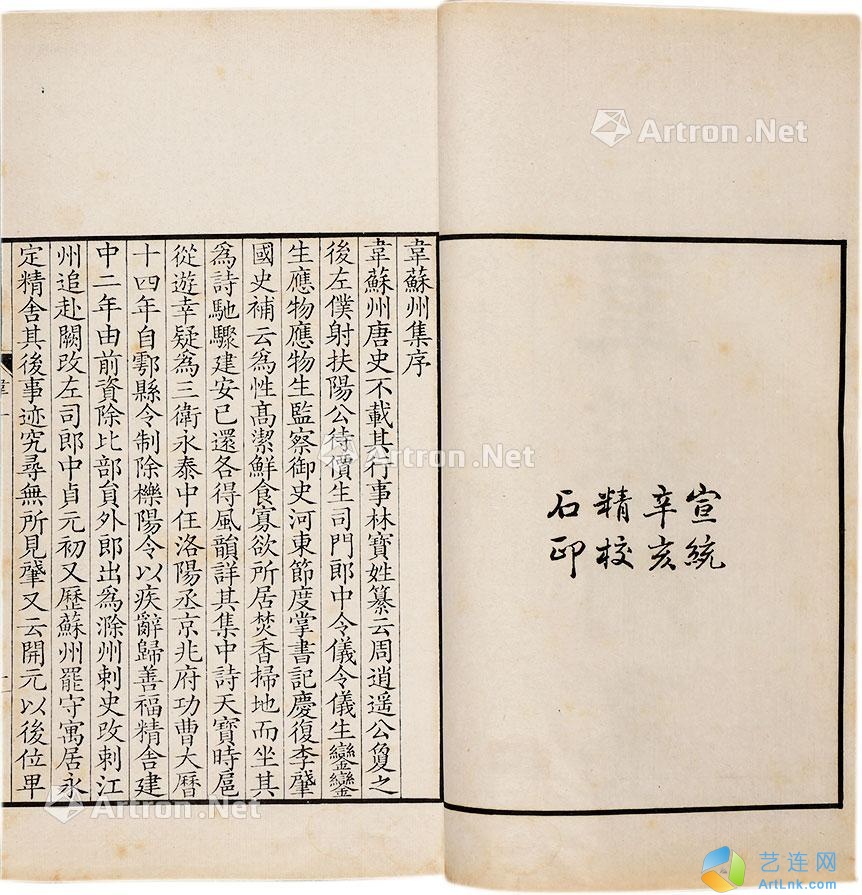 宣統
辛亥
精校
石印
韋蘇州集序
韋蘇州唐史不載其行事林寶姓纂云周逍遥公敻之
後左僕射扶陽公待價生司門郎中令儀令儀生鑾鑾
生應物應物生監察御史河東節度掌書記慶復李肇
國史補云為性高潔鮮食寡欲所居焚香掃地而坐其
為詩馳驟建安已還各得風韻詳其集中詩天寶時扈
從遊幸疑為三衛永泰中任洛陽丞京兆府功曹大曆
十四年自鄠縣令制除櫟陽令以疾辭歸善福精舍建
中二年由前資除比部員外郎出為滁州刺史改刺江
州追赴闕改左司郎中貞元初又歷蘇州罷守寓居永
定精舍其後事迹究尋無所見肇又云開元以後位卑
Artron.Net
Artron.Net
Artron.Net
艺连网
ArtLnk.com